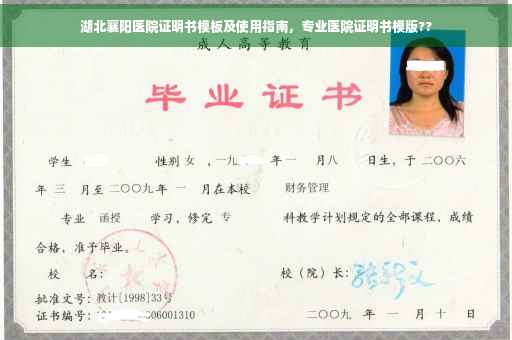 湖北襄阳医院证明书模板及使用指南，专业医院证明书模版??
成人高等教育
毕业证书
学生 性别 女 ，一九 年 一 月八 日生，于 二〇〇六
年 三 月至 二〇〇九 年 一 月在本校 财务管理
专业 函授 学习，修完 专 科教学计划规定的全部课程，成绩
合格，准予毕业。
校 名： 校（院）长：
批准文号：教计[1998]33号
证书编号： 06001310 二〇〇九 年 一 月 十 日